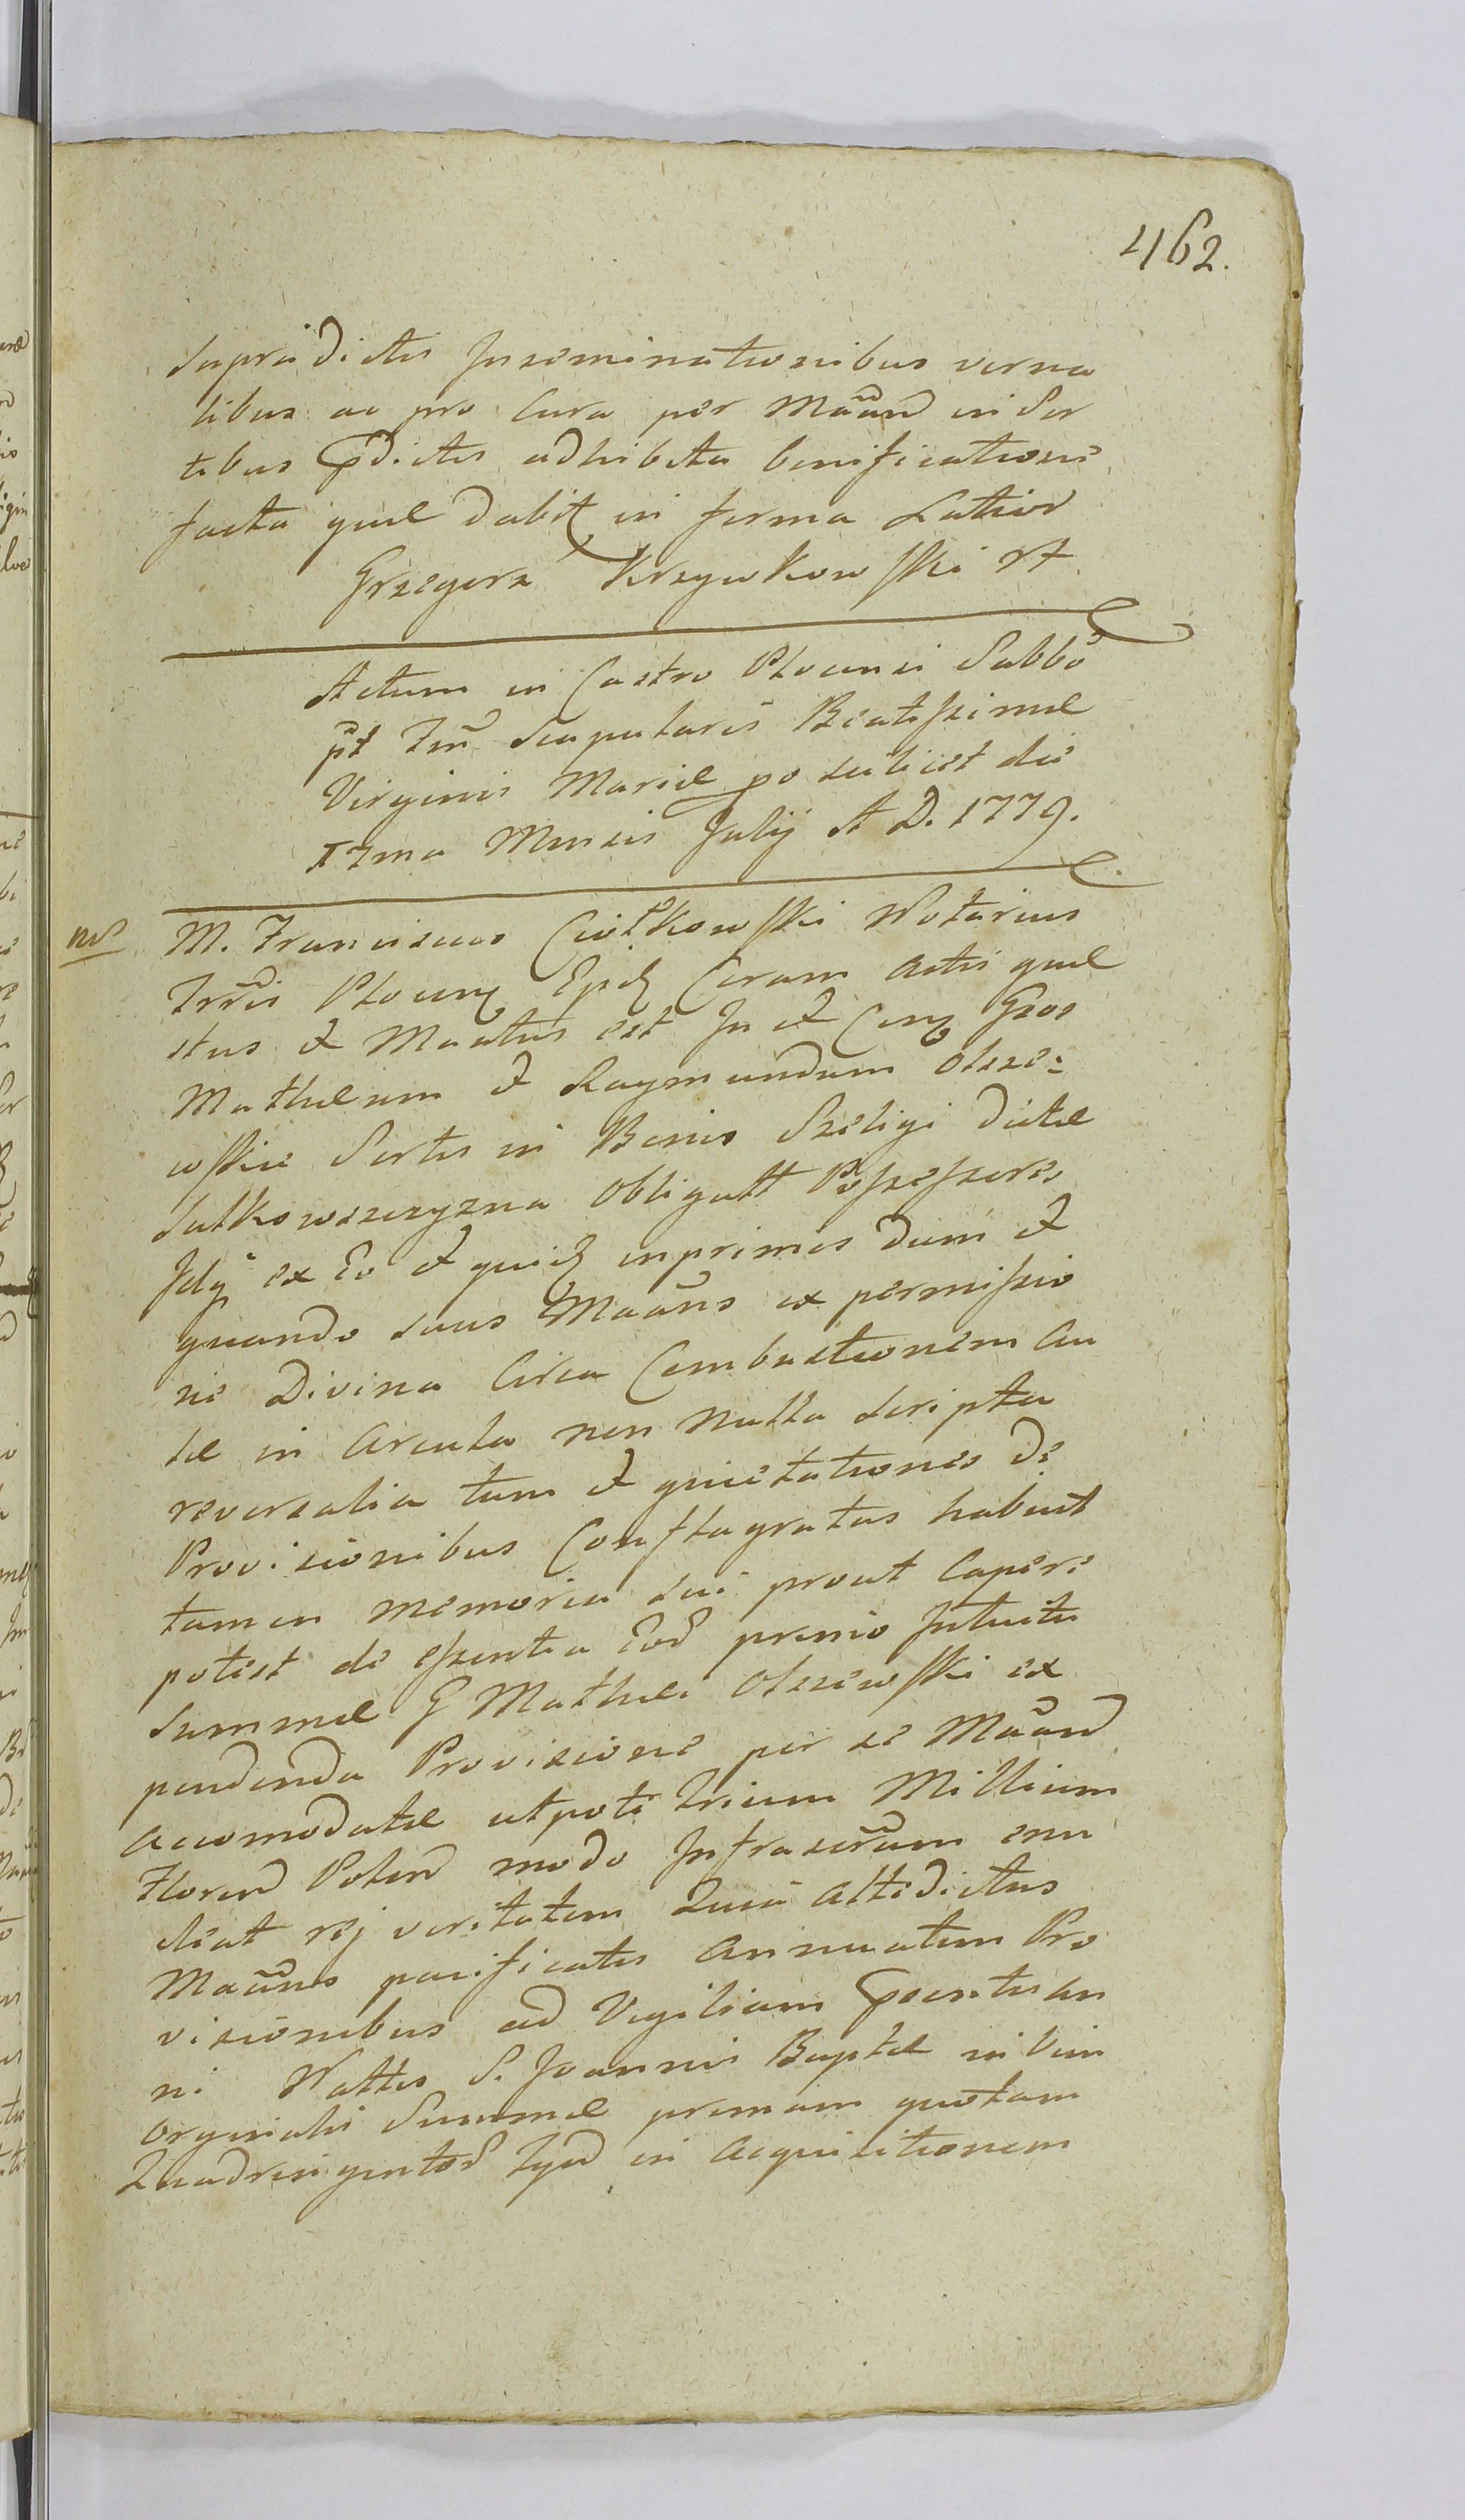 462.
supradictis Inseminationibus verna
libus ac pro Cura per Maãnd in Sor
tibus pdictis adhibita bonificatione
facta quæ dabit in forma Latiori
Grzegorz Krzywkowski
Actum in Castro Plocensi Sabbo
pt Fm̃ Scapularis Beatissimæ
Virginis Mariæ po scilicet die
17ma Mensis Julij A D. 1779.
M. Franciscus Ciołkowski Notarius
Trr̃is Plocens Epd Coram Actis que
stus & Maatus est In & Conq Gsos
Mathæum & Raymundum Olsze=
wskie Sortis in Bonis Szeligi dictæ
Sulkowszczyzna Obligatt Possessores
Idq ex Eo & quid inprimis dum &
quando suus Maãns ex permissio
ne Divina Circa Combustionem Au
læ in Arcula non nulla scripta
reversalia tum & quietationes de
Provisionibus Conflagratas habuit
tamen memoria sui prout Capere
potest de essentia Eod præmio Intuitu
Summæ G Mathæi Olszewski ex
pendenda Provisione per se Maãnd
accomodatæ utpote trium Millium
Floren Polon modo Infrascr̃um enu
cleat rej veritatem Quia Attedictus
Maãns pacificatis Annuatim Pro
visionibus ad Vigiliam psentis an
ni Nattis S. Joannis Baptæ in Vim
orginalis Summæ primam quotam
Quadringentos Tyd in Acquisitionem